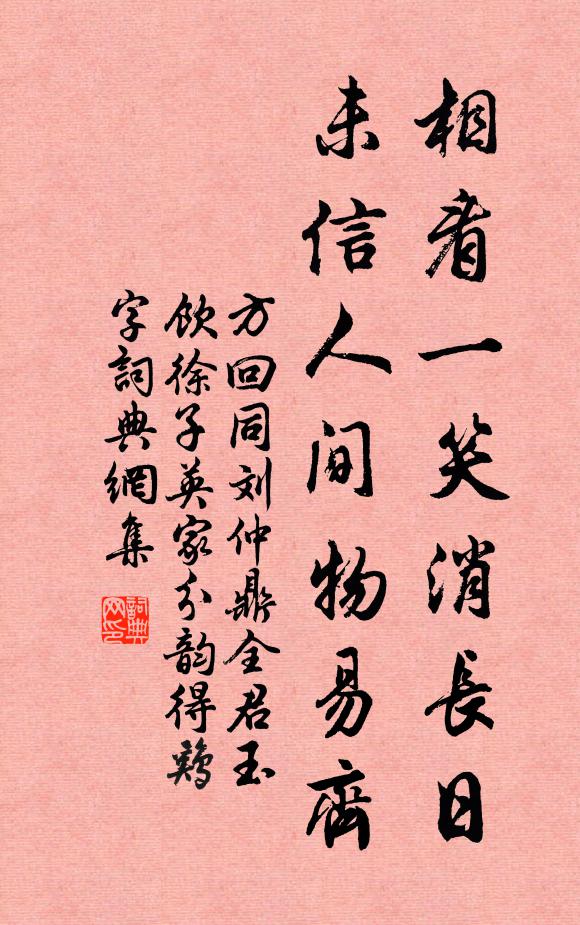 相看一笑消長日
未信人间物易齊
方回同刘仲鼎全君玉
飲徐子英家分韵得鷄
字詞典網集
詞典
网印